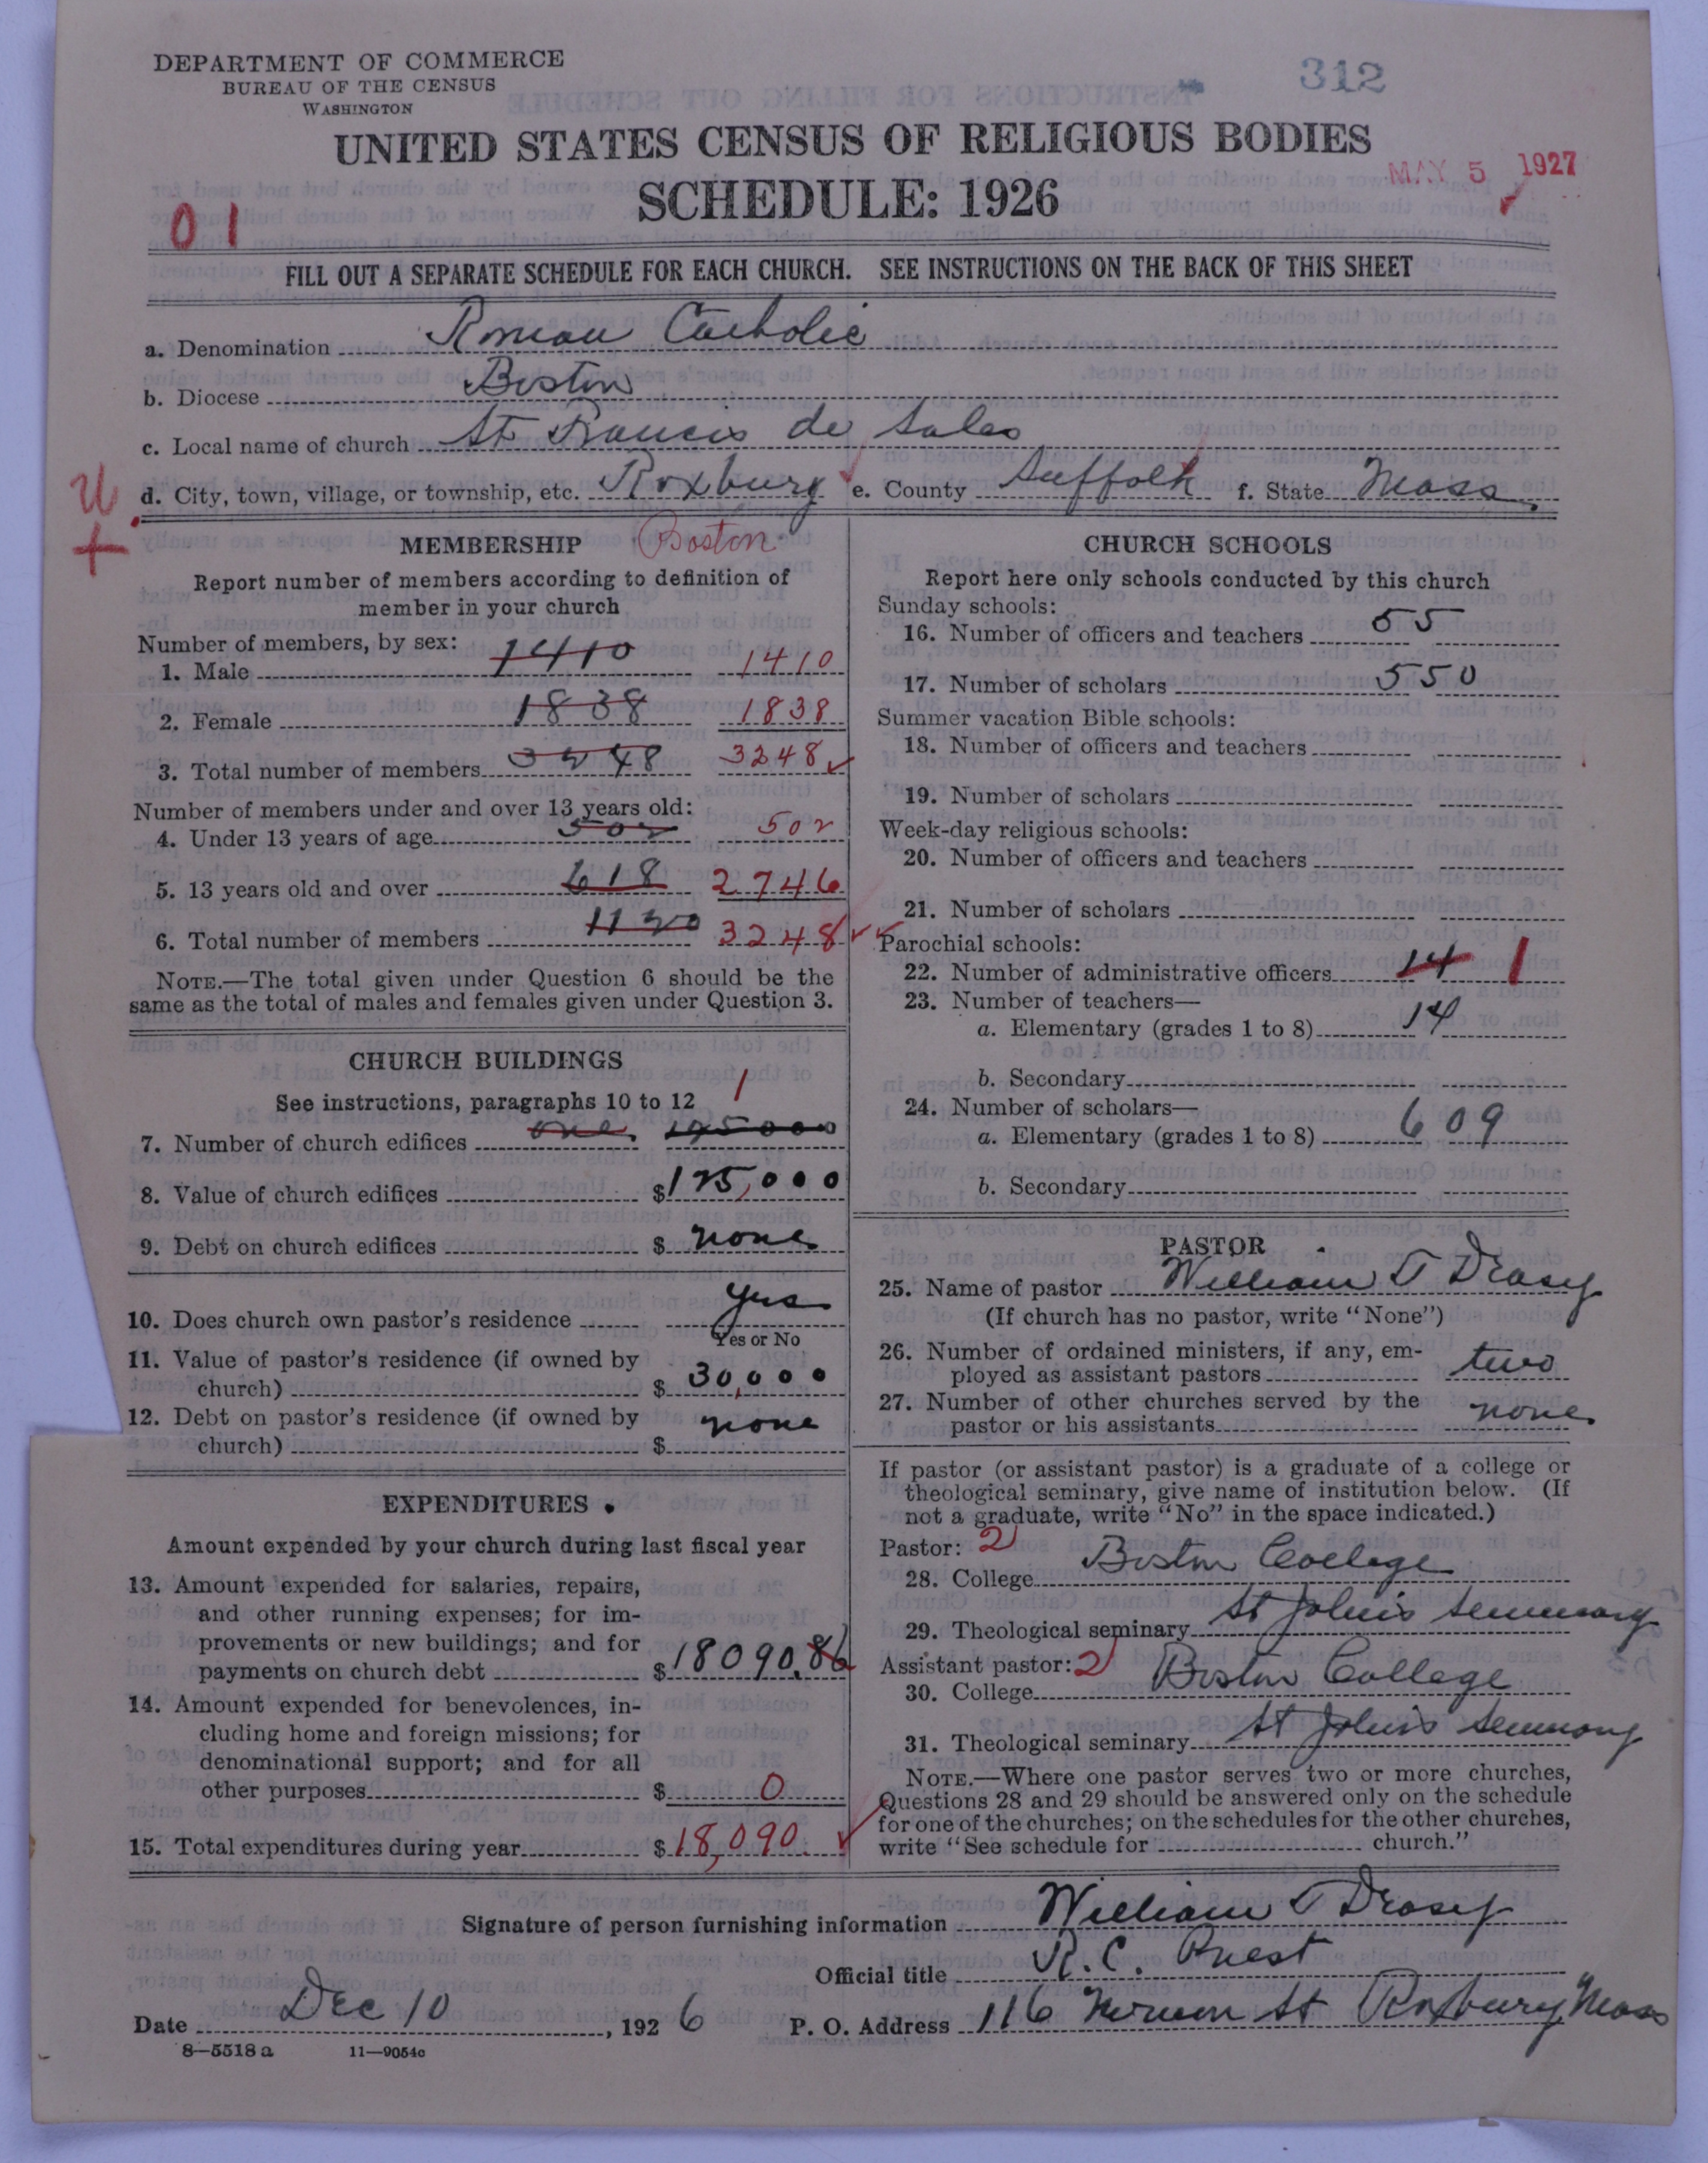 DEPARTMENT OF COMMERCE
BUREAU OF THE CENSUS
WASHINGTON
312
UNITED STATES CENSUS OF RELIGIOUS BODIES
SCHEDULE: 1926
MAY 5 1927
01
FILL OUT A SEPARATE SCHEDULE FOR EACH CHURCH. SEE INSTRUCTIONS ON THE BACK OF THIS SHEET
a. Denomination Roman Catholic
b. Diocese Boston
c. Local name of church St Francis de Sales
d. City, town, village, or township, etc. Roxbury e. County Suffolk f. State Mass
U
+
MEMBERSHIP Boston
Report number of members according to definition of
member in your church
Number of members, by sex:
1. Male 1410 1410
2. Female 1838 1838
3. Total number of members 3248 3248
Number of members under and over 13 years old:
4. Under 13 years of age 502 502
5. 13 years old and over 618 2746
6. Total number of members 1120 3248
NOTE.—The total given under Question 6 should be the
same as the total of males and females given under Question 3.
CHURCH BUILDINGS
See instructions, paragraphs 10 to 12 1
7. Number of church edifices one 125000
8. Value of church edifices $125,000
9. Debt on church edifices $ none
10. Does church own pastor's residence yes
Yes or No
11. Value of pastor's residence (if owned by
church) $ 30,000
12. Debt on pastor's residence (if owned by
church) $ none
EXPENDITURES
Amount expended by your church during last fiscal year
13. Amount expended for salaries, repairs,
and other running expenses; for im-
provements or new buildings; and for
payments on church debt $18090.86
14. Amount expended for benevolences, in-
cluding home and foreign missions; for
denominational support; and for all
other purposes $ 0
15. Total expenditures during year $18,090.
CHURCH SCHOOLS
Report here only schools conducted by this church
Sunday schools:
16. Number of officers and teachers 55
17. Number of scholars 550
Summer vacation Bible schools:
18. Number of officers and teachers
19. Number of scholars
Week-day religious schools:
20. Number of officers and teachers
21. Number of scholars
Parochial schools:
22. Number of administrative officers 14 1
23. Number of teachers—
a. Elementary (grades 1 to 8) 14
b. Secondary
24. Number of scholars—
a. Elementary (grades 1 to 8) 609
b. Secondary
PASTOR
25. Name of pastor William J Drasy
(If church has no pastor, write "None")
26. Number of ordained ministers, if any, em-
ployed as assistant pastors two
27. Number of other churches served by the
pastor or his assistants none
If pastor (or assistant pastor) is a graduate of a college or
theological seminary, give name of institution below. (If
not a graduate, write "No" in the space indicated.)
Pastor: 2
28. College Boston College
29. Theological seminary St John's Seminary
Assistant pastor: 2
30. College Boston College
31. Theological seminary St John's Seminary
NOTE.—Where one pastor serves two or more churches,
Questions 28 and 29 should be answered only on the schedule
for one of the churches; on the schedules for the other churches,
write "See schedule for church."
Signature of person furnishing information William J Drasy
Official title R.C. Priest
Date Dec 10, 1926 P. O. Address 116 Vernon St Roxbury Mass
8—5518a 11—9054c